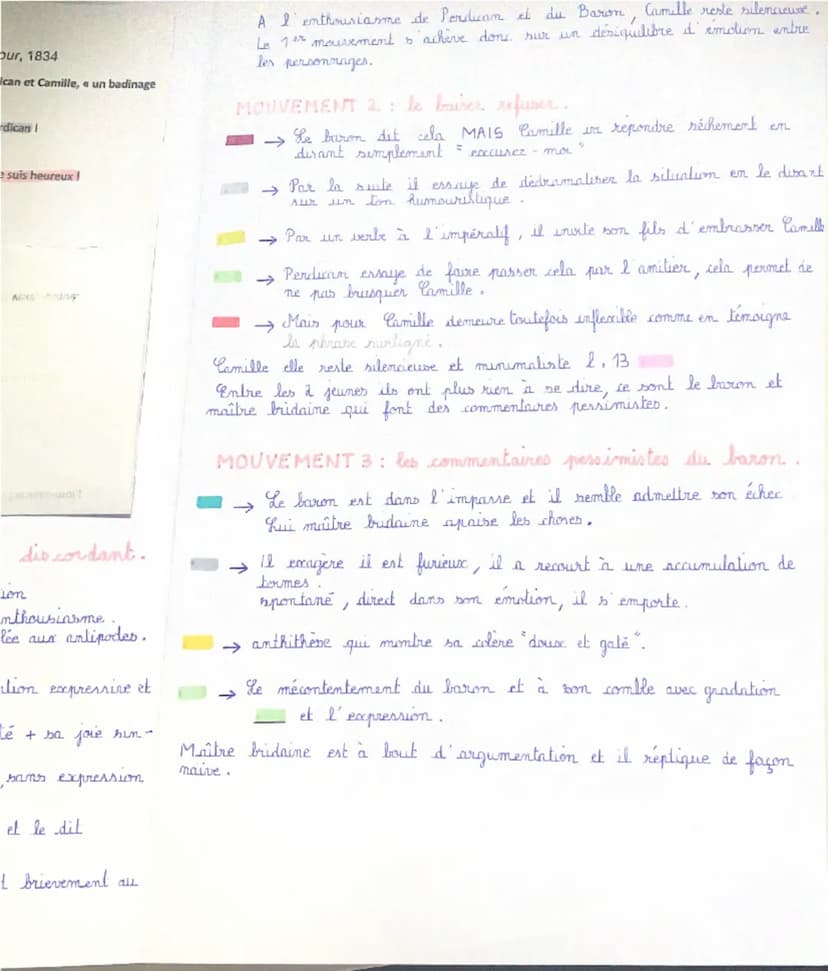 our, 1834
ican et Camille, « un badinage
rdican !
e suis heureux !
discordant.
ion
nthousiasme.
lée aux antipodes.
tion expressive et
té + sa joie sin-
, sans expression
et le dit
t brievement au
A l'enthousiasme de Perdican et du Baron, Camille reste silencieuse.
Le 1er mouvement s'achève donc sur un déséquilibre d'émotion entre
les personnages.
MOUVEMENT 2 : le baiser refuser.
→ Le baron dit cela MAIS Camille va répondre sèchement en
disant simplement "excusez-moi"
→ Par la suite il essaye de dédramatiser la situation en le disant
sur un ton humouristique.
→ Par un verbe à l'impératif, il invite son fils d'embrasser Camille
→ Perdican essaye de faire passer cela par l'amitier, cela permet de
ne pas brusquer Camille.
→ Mais pour Camille demeure toutefois inflexible comme en témoigne
la phrase surligné.
Camille elle reste silencieuse et minimaliste l.13
Entre les 2 jeunes ils ont plus rien à se dire, ce sont le baron et
maître bridaine qui font des commentaires pessimistes.
MOUVEMENT 3 : les commentaires pessimistes du baron.
→ Le baron est dans l'impasse et il semble admettre son échec
Lui maître bridaine apaise les choses.
→ il exagère il est furieux, il a recourt à une accumulation de
termes.
spontané, direct dans son émotion, il s'emporte.
→ anthithèse qui montre sa colère "doux et gaté".
→ Le mécontentement du baron et à son comble avec gradation
et l'expression.
Maître bridaine est à bout d'argumentation et il réplique de façon
naive.